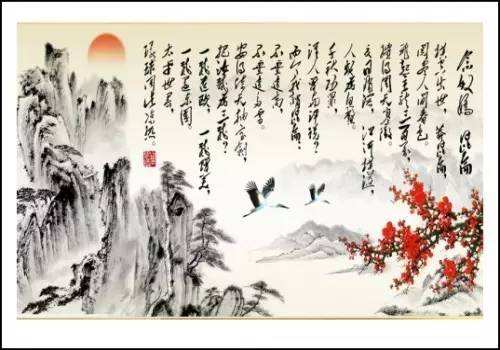 念奴娇 昆仑
横空出世,莽昆仑,
阅尽人间春色。
飞起玉龙三百万,
搅得周天寒彻。
夏日消溶,江河横溢,
人或为鱼鳖。
千秋功罪,
谁人曾与评说?
而今我谓昆仑:
不要这高,
不要这多雪。
安得倚天抽宝剑,
把汝裁为三截?
一截遗欧,一截赠美,
一截还东国。
太平世界,
环球同此凉热。